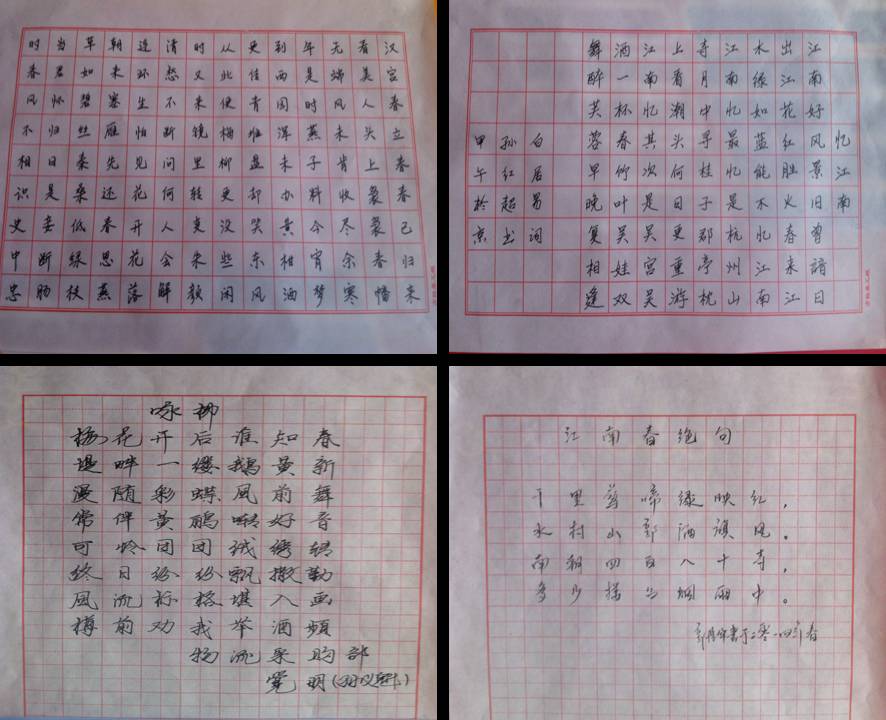 汉宫春立春春已归来
看美人头上袅袅春幡
无端风未肯收尽余寒
年是时燕子料今宵梦
到西园浑未办黄柑酒
更佳青韭盘却笑东风
从此便梅柳更没些闲
时又来镜里转变朱颜
清愁不断问何人会解
连环生怕见花开花落
朝来塞雁先还春思燕
草如碧丝秦桑低绿枝
当君怀归日是妾断肠
时春风不相识史中忠
忆江南
江南好风景旧曾谙日
出江花红胜火春来江
水绿如蓝能不忆江南
江南忆最忆是杭州山
寺月中寻桂子郡亭枕
上看潮头何日更重游
江南忆其次是吴宫吴
酒一杯春竹叶吴娃双
舞醉芙蓉早晚复相逢
白居易词
孙红超书
甲午於京
咏柳
梅花开后谁知春
堤畔一缕鹅黄新
漫随彩蝶風前舞
常伴黄鹂啭好音
可怜团团绒绣转
终日纷纷飘撒勤
風流标格堪入画
樽前劝我举酒频
物流采购部
明
江南春绝句
千里莺啼绿映红，
水村山郭酒旗风。
南朝四百八十寺，
多少楼台烟雨中。
书于二零一四年春